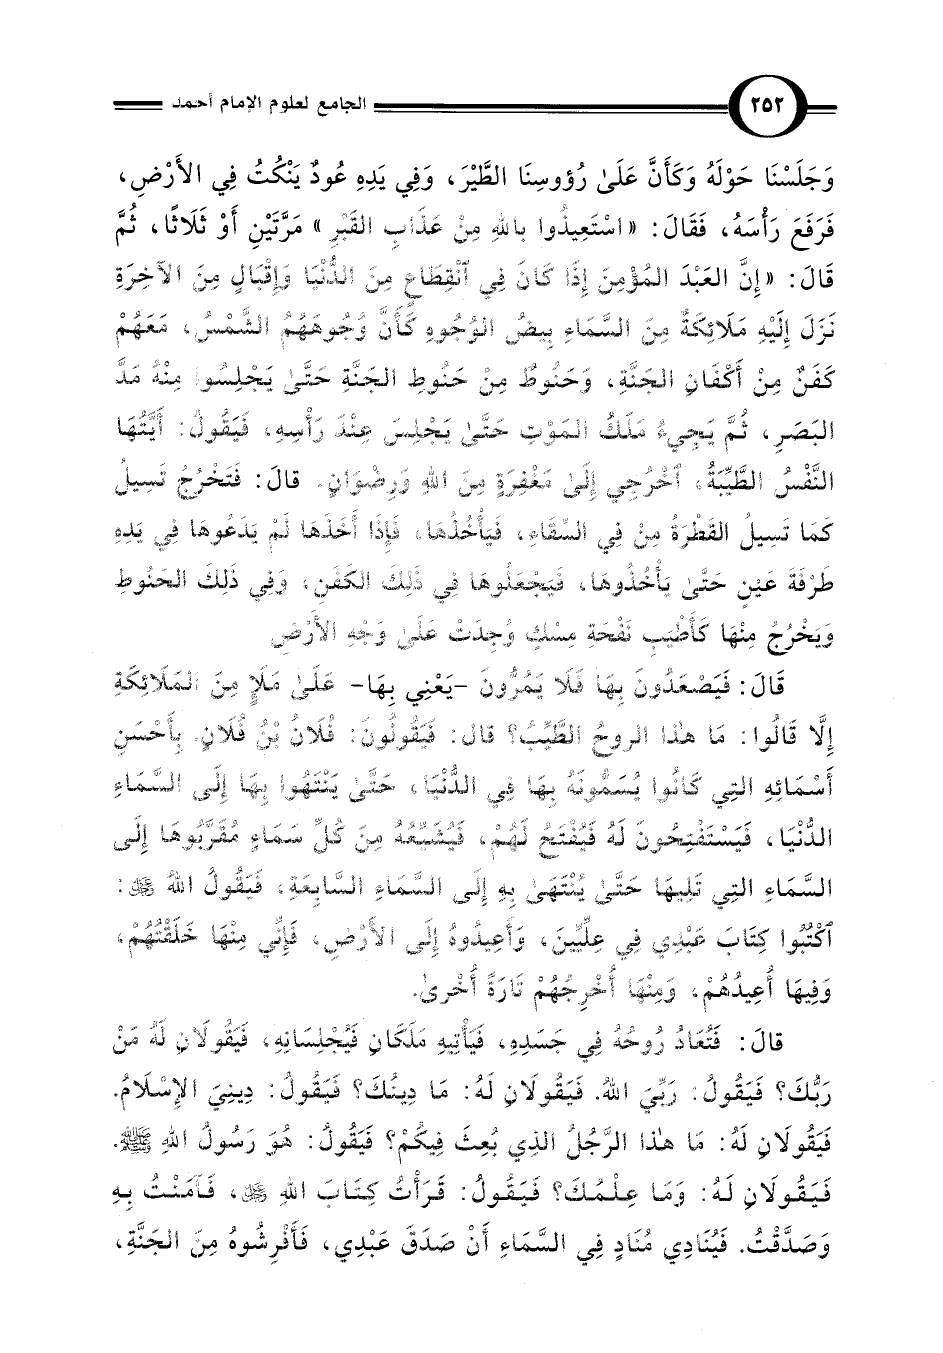 ٢٥٢ الجامع لعلوم الإمام أحمد
وَجَلَسْنَا حَوْلَهُ وَكَأَنَّ عَلَىٰ رُؤُوسِنَا الطَّيْرَ، وَفِي يَدِهِ عُودٌ يَنْكُتُ فِي الأَرْضِ،
فَرَفَعَ رَأْسَهُ، فَقَالَ: «اسْتَعِيذُوا بالله مِنْ عَذَابِ القَبْرِ» مَرَّتَيْنِ أَوْ ثَلَاثًا، ثُمَّ
قَالَ: «إِنَّ العَبْدَ المُؤْمِنَ إِذَا كَانَ فِي ٱنْقِطَاعٍ مِنَ الدُّنْيَا وَإِقْبَالٍ مِنَ الآخِرَةِ
نَزَلَ إِلَيْهِ مَلَائِكَةٌ مِنَ السَّمَاءِ بِيضُ الوُجُوهِ كَأَنَّ وُجُوهَهُمُ الشَّمْسُ، مَعَهُمْ
كَفَنٌ مِنْ أَكْفَانِ الجَنَّةِ، وَحَنُوطٌ مِنْ حَنُوطِ الجَنَّةِ حَتَّىٰ يَجْلِسُوا مِنْهُ مَدَّ
البَصَرِ، ثُمَّ يَجِيءُ مَلَكُ المَوْتِ حَتَّىٰ يَجْلِسَ عِنْدَ رَأْسِهِ، فَيَقُولُ: أَيَّتُهَا
النَّفْسُ الطَّيِّبَةُ، ٱخْرُجِي إِلَىٰ مَغْفِرَةٍ مِنَ اللهِ وَرِضْوَانٍ. قالَ: فَتَخْرُجُ تَسِيلُ
كَمَا تَسِيلُ القَطْرَةُ مِنْ فِي السِّقَاءِ، فَيَأْخُذُهَا، فَإِذَا أَخَذَهَا لَمْ يَدَعُوهَا فِي يَدِهِ
طَرْفَةَ عَيْنٍ حَتَّىٰ يَأْخُذُوهَا، فَيَجْعَلُوهَا فِي ذَلِكَ الكَفَنِ، وَفِي ذَلِكَ الحَنُوطِ
وَيَخْرُجُ مِنْهَا كَأَطْيَبِ نَفْحَةِ مِسْكٍ وُجِدَتْ عَلَىٰ وَجْهِ الأَرْضِ
قَالَ: فَيَصْعَدُونَ بِهَا فَلَا يَمُرُّونَ -يَعْنِي بِهَا- عَلَىٰ مَلَإٍ مِنَ المَلَائِكَةِ
إِلَّا قَالُوا: مَا هٰذا الروحُ الطَّيِّبُ؟ قال: فَيَقُولُونَ: فُلَانُ بْنُ فُلَانٍ. بِأَحْسَنِ
أَسْمَائِهِ التِي كَانُوا يُسَمُّونَهُ بِهَا فِي الدُّنْيَا، حَتَّىٰ يَنْتَهُوا بِهَا إِلَى السَّمَاءِ
الدُّنْيَا، فَيَسْتَفْتِحُونَ لَهُ فَيُفْتَحُ لَهُمْ، فَيُشَيِّعُهُ مِنْ كُلِّ سَمَاءٍ مُقَرَّبُوهَا إِلَى
السَّمَاءِ التِي تَلِيهَا حَتَّىٰ يُنْتَهَىٰ بِهِ إِلَى السَّمَاءِ السَّابِعَةِ، فَيَقُولُ اللهُ ﷻ:
ٱكْتُبُوا كِتَابَ عَبْدِي فِي عِلِّيِّينَ، وَأَعِيدُوهُ إِلَى الأَرْضِ، فَإِنِّي مِنْهَا خَلَقْتُهُمْ،
وَفِيهَا أُعِيدُهُمْ، وَمِنْهَا أُخْرِجُهُمْ تَارَةً أُخْرىٰ.
قالَ: فَتُعَادُ رُوحُهُ فِي جَسَدِهِ، فَيَأْتِيهِ مَلَكَانِ فَيُجْلِسَانِهِ، فَيَقُولَانِ لَهُ مَنْ
رَبُّكَ؟ فَيَقُولُ: رَبِّيَ اللهُ. فَيَقُولَانِ لَهُ: مَا دِينُكَ؟ فَيَقُولُ: دِينِيَ الإِسْلَامُ.
فَيَقُولَانِ لَهُ: مَا هٰذا الرَّجُلُ الذِي بُعِثَ فِيكُمْ؟ فَيَقُولُ: هُوَ رَسُولُ اللهِ ﷺ.
فَيَقُولَانِ لَهُ: وَمَا عِلْمُكَ؟ فَيَقُولُ: قَرَأْتُ كِتَابَ اللهِ ﷻ، فَآمَنْتُ بِهِ
وَصَدَّقْتُ. فَيُنَادِي مُنَادٍ فِي السَّمَاءِ أَنْ صَدَقَ عَبْدِي، فَأَفْرِشُوهُ مِنَ الجَنَّةِ،